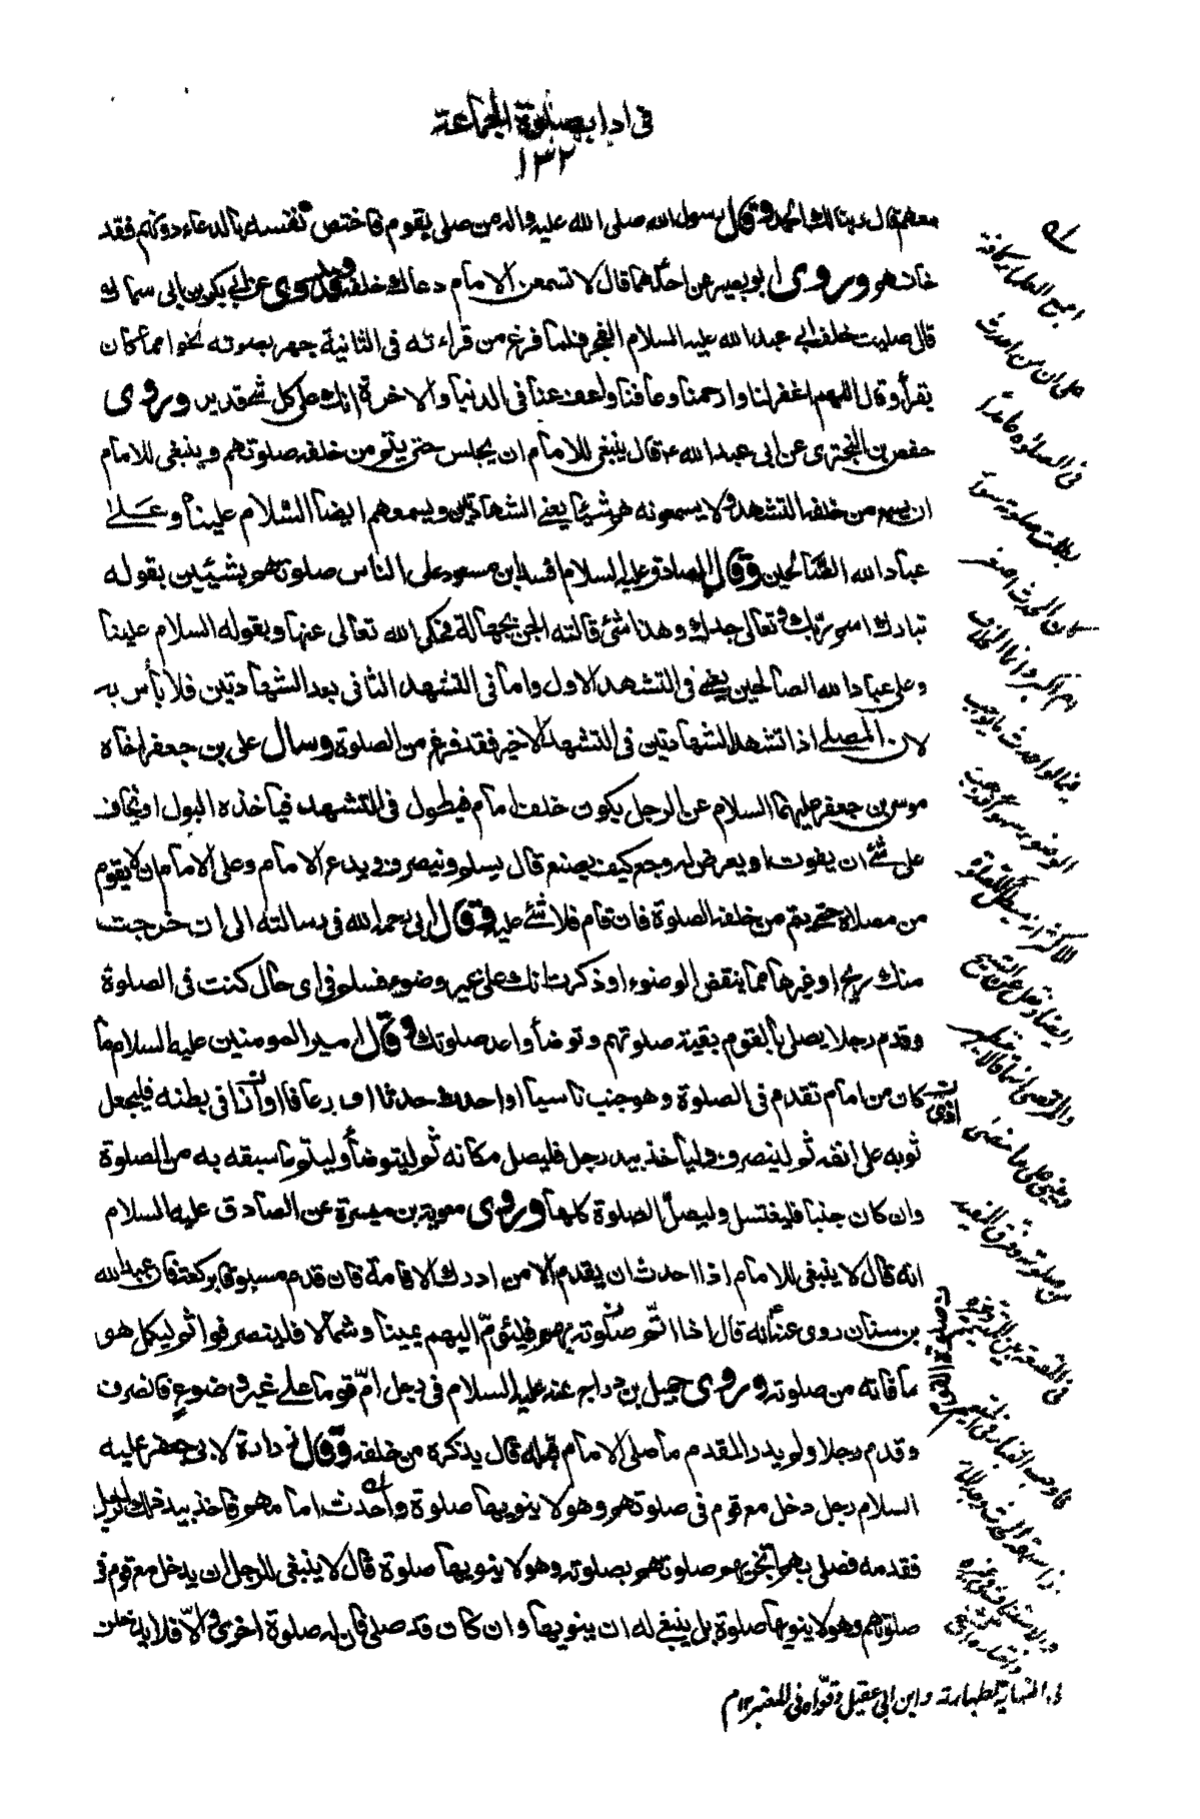 في اداب صلوة الجماعة
١٣٢
معهم قال ربنا لك الحمد وقال رسول الله صلى الله عليه واله من صلى بقوم فاختص نفسه بالدعاء دونهم فقد
خانهم وروى ابو بصير عن احدهما قال لا تسمعن الامام دعاك خلفه وروى عن ابي بكر بن ابي سماك
قال صليت خلف ابي عبد الله عليه السلام الفجر فلما فرغ من قراءته في الثانية جهر بصوته نحوا مما كان
يقرأ وقال اللهم اغفر لنا وارحمنا وعافنا واعف عنا في الدنيا والاخرة انك على كل شئ قدير وروى
حفص بن البختري عن ابي عبد الله ع قال ينبغي للامام ان يجلس حتى يتم من خلفه صلوتهم وينبغي للامام
ان يسمع من خلفه التشهد ولا يسمعونه هم شيئا يعني الشهادتين ويسمعهم ايضا السلام علينا وعلى
عباد الله الصالحين وقال الصادق عليه السلام افسد ابن مسعود على الناس صلوتهم بشيئين بقوله
تبارك اسم ربك وتعالى جدك وهذا شئ قالته الجن بجهالة فحكى الله تعالى عنها وبقوله السلام علينا
وعلى عباد الله الصالحين يعني في التشهد الاول واما في التشهد الثاني بعد الشهادتين فلا بأس به
لان المصلي اذا تشهد الشهادتين في التشهد الاخير فقد فرغ من الصلوة وسال علي بن جعفر اخاه
موسى بن جعفر عليهما السلام عن الرجل يكون خلف امام فيطول في التشهد فيأخذه البول او يخاف
على شئ ان يفوت او يعرض له وجع كيف يصنع قال يسلم وينصرف ويدع الامام وعلى الامام ان لا يقوم
من مصلاه حتى يتم من خلفه الصلوة فان قام فلا شئ عليه وقال ابي رحمه الله في رسالته الي ان خرجت
منك ريح او غيرها مما ينقض الوضوء او ذكرت انك على غير وضوء فسلم في اى حال كنت في الصلوة
وقدم رجلا يصلي بالقوم بقية صلوتهم وتوضأ واعد صلوتك وقال امير المومنين عليه السلام ما
كان من امام تقدم في الصلوة وهو جنب ناسيا او احدث حدثا او رعف رعافا او ازا في بطنه فليجعل
ثوبه على انفه ثم لينصرف وليأخذ بيد رجل فليصل مكانه ثم ليتوضأ وليتم ما سبقه به من الصلوة
وان كان جنبا فليغتسل وليصل الصلوة كلها وروى معوية بن ميسرة عن الصادق عليه السلام
انه قال لا ينبغي للامام اذا احدث ان يقدم الا من ادرك الاقامة فان قدم مسبوقا بركعة فان عبد الله
بن سنان روى عنه انه قال اذا اتم صلوته بهم فليؤم اليهم يمينا وشمالا فلينصرفوا ثم ليكمل هو
ما فاته من صلوته وروى جميل بن دراج عنه عليه السلام في رجل ام قوما على غير وضوء فانصرف
وقدم رجلا ولم يدر المقدم ما صلى الامام قبله قال يذكره من خلفه وقال زرارة لابي جعفر عليه
السلام رجل دخل مع قوم في صلوتهم وهو لا ينويها صلوة واحدث امامهم فاخذ بيد ذلك الرجل
فقدمه فصلى بهم اتجزيهم صلوتهم بصلوته وهو لا ينويها صلوة قال لا ينبغي للرجل ان يدخل مع قوم في
صلوتهم وهو لا ينويها صلوة بل ينبغي له ان ينويها وان كان قد صلى فان له صلوة اخرى والا فلا يدخلن
اجمع العلماء كافة
على ان من احدث
في الصلوة عامدا
بطلت صلوته سواء
كان الحدث اصغر